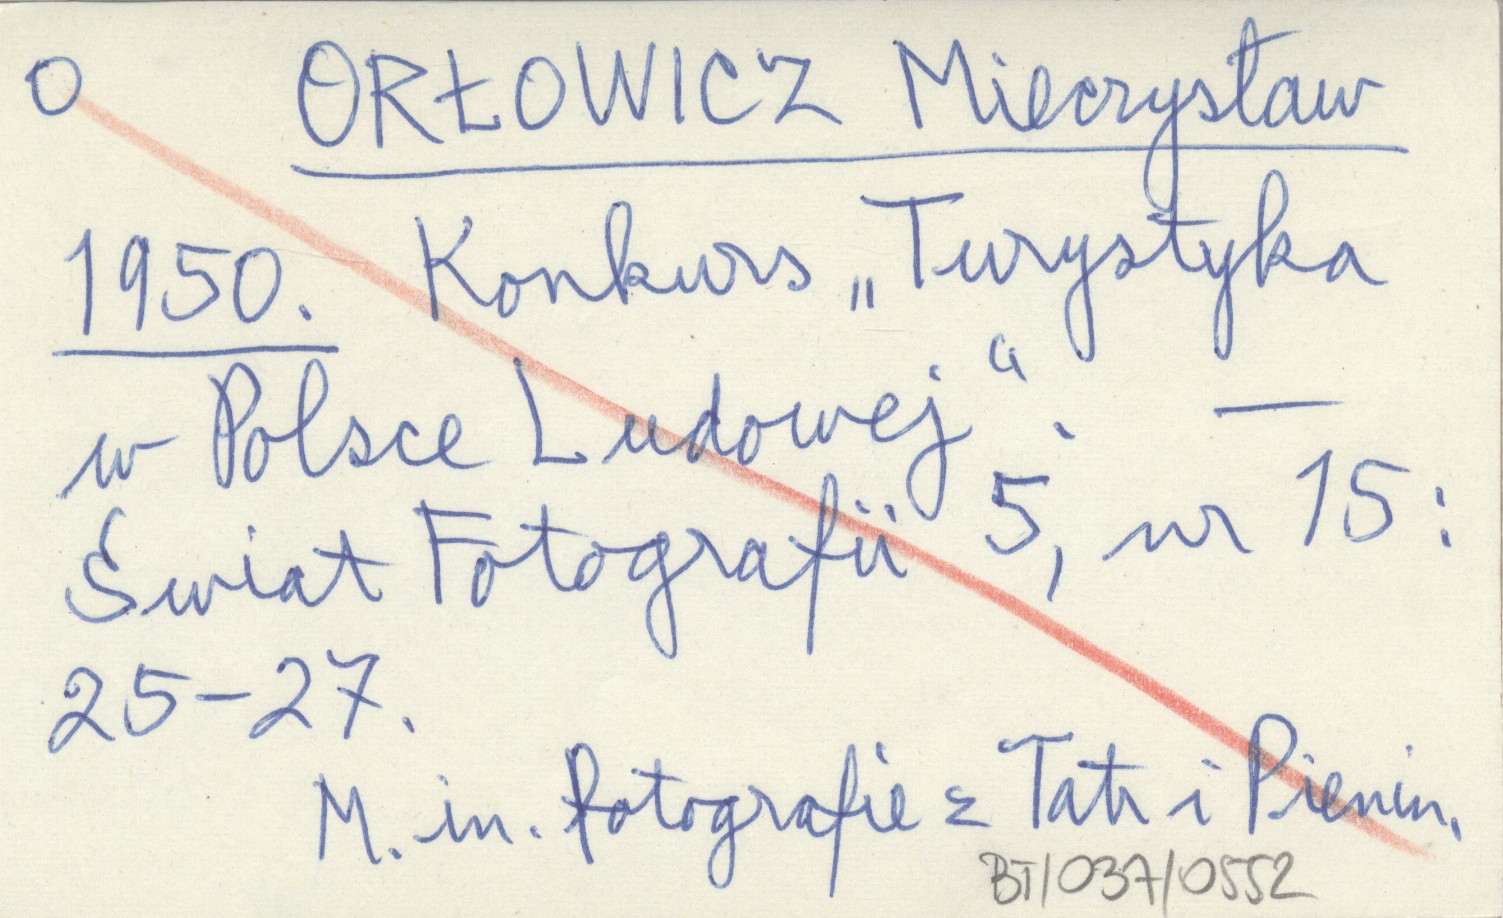 O ORŁOWICZ Mieczysław
1950. Konkurs „Turystyka
w Polsce Ludowej“. —
Świat Fotografii 5, nr 15:
25-27.
M. in. fotografie z Tatr i Pienin.
BT/037/0552